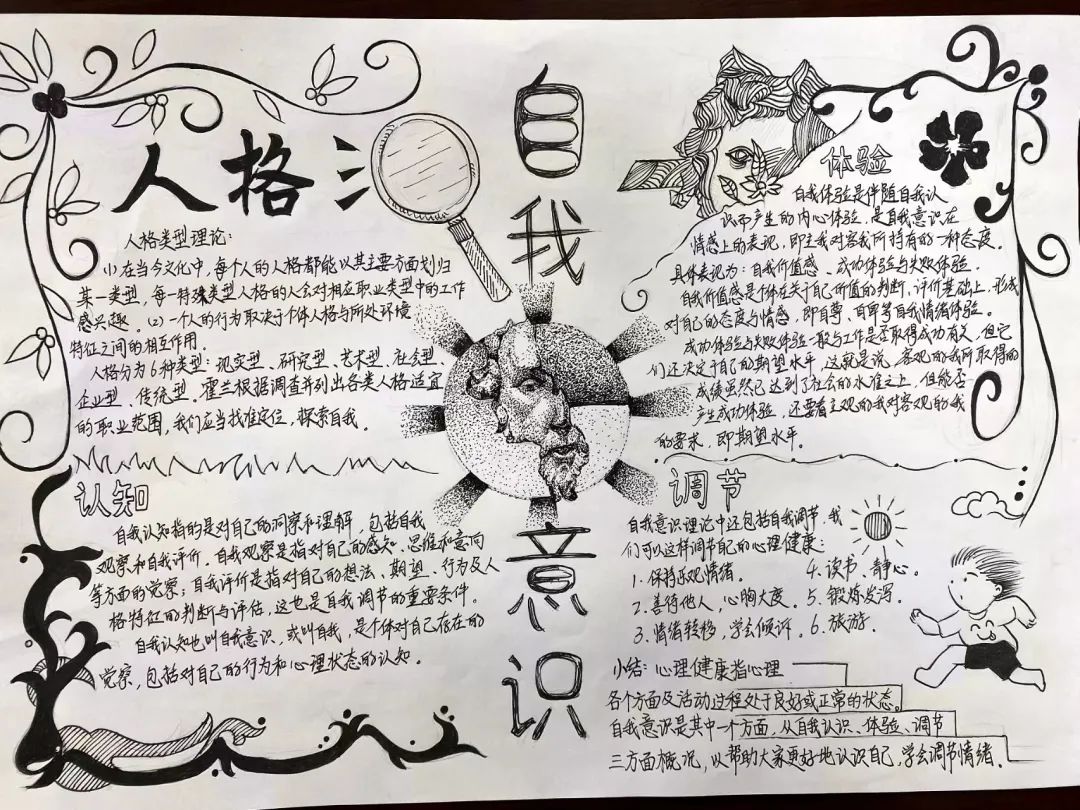 自我意识
人格
人格类型理论：
(1) 在当今文化中，每个人的人格都能以其主要方面划归
某一类型，每一特殊类型人格的人会对相应职业类型中的工作
感兴趣。(2) 一个人的行为取决于个体人格与所处环境
特征之间的相互作用。
人格分为6种类型：现实型、研究型、艺术型、社会型、
企业型、传统型。霍兰根据调查并列出各类人格适宜
的职业范围，我们应当找准定位，探索自我。
认知
自我认知指的是对自己的洞察和理解，包括自我
观察和自我评价。自我观察是指对自己的感知、思维和意向
等方面的觉察；自我评价是指对自己的想法、期望、行为及人
格特征的判断与评估，这也是自我调节的重要条件。
自我认知也叫自我意识，或叫自我，是个体对自己存在的
觉察，包括对自己的行为和心理状态的认知。
体验
自我体验是伴随自我认
识而产生的内心体验，是自我意识在
情感上的表现，即主我对客我所持有的一种态度。
具体表现为：自我价值感、成功体验与失败体验。
自我价值感是个体在关于自己价值的判断、评价基础上，形成
对自己的态度与情感，即自尊、自卑等自我情绪体验。
成功体验与失败体验一般与工作是否取得成功有关，但它
们还决定于自己的期望水平，这就是说，客观的我所取得的
成绩虽然已达到了社会的水准之上，但能否
产生成功体验，还要看主观的我对客观的我
的要求，即期望水平。
调节
自我意识理论中还包括自我调节，我
们可以这样调节自己的心理健康：
1. 保持乐观情绪。 4. 读书、静心。
2. 善待他人，心胸大度。 5. 锻炼发泄。
3. 情绪转移，学会倾诉。 6. 旅游.
小结：心理健康指心理
各个方面及活动过程处于良好或正常的状态。
自我意识是其中一个方面，从自我认识、体验、调节
三方面概况，以帮助大家更好地认识自己，学会调节情绪.